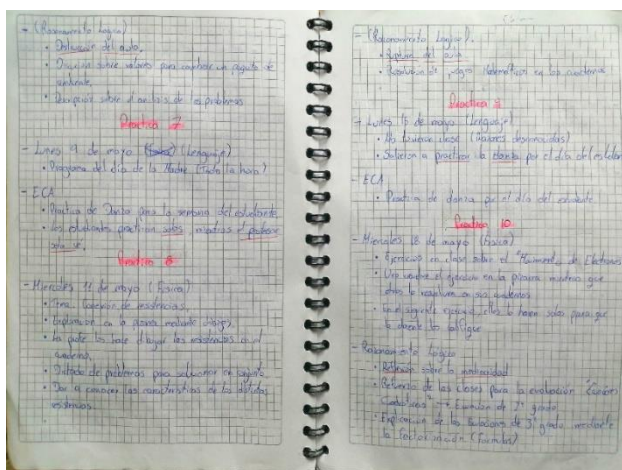 - (Razonamiento Lógico)
• Distracción del aula.
• Discusión sobre valores para construir un pequeño de
ambiente.
• Percepción sobre el análisis de los problemas
Práctica 7
- Lunes 9 de mayo (Lenguaje)
• Programa del día de la Madre (Toda la hora)
- ECA
• Práctica de Danza para la semana del estudiante
• Los estudiantes practican solos, mientras el profesor
solo ve.
Práctica 8
- Miércoles 11 de mayo (Física)
• Tema: conexión de resistencias.
• Explicación en la pizarra mediante dibujo.
• La profe los hace dibujar las resistencias en el
cuaderno.
• Dictado de problemas para solucionar en
• Dar a conocer las características de las distintas
resistencias.
- (Razonamiento Lógico).
• del aula
• Resolución de Matemáticos en los cuadernos
Práctica 9
- Lunes 16 de mayo (Lenguaje)
• No tuvieron clase (Valores desconocidos)
• Salieron a practicar la danza por el día del estudiante
- ECA
• Práctica de danza por el día del estudiante
Práctica 10
- Miércoles 18 de mayo (Física)
• Ejercicios en clase sobre el "Movimiento de Electrones
• Uno resuelve el ejercicio en la pizarra mientras que
otros lo resuelven en sus cuadernos
• En el siguiente ejercicio, ellos lo hacen solos para que
la docente los califique
- Razonamiento Lógico
• Reflexión sobre la
• Refuerzo de las clases para la evaluación "Funciones
Cuadráticas" → Ecuación de 2° grado
• Explicación de las Ecuaciones de 3° grado mediante
la factorización (Fórmulas)